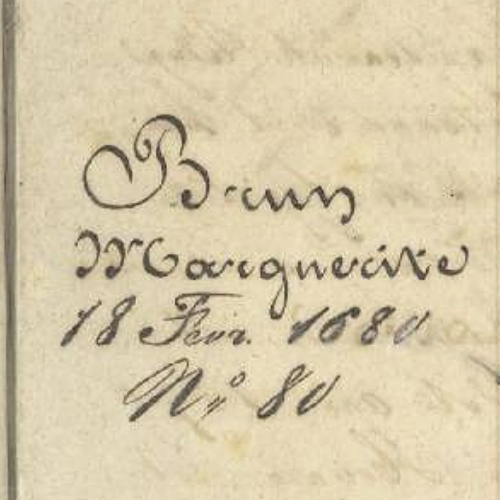 Brun
Marguerite
18 Fevr. 1680
No. 80